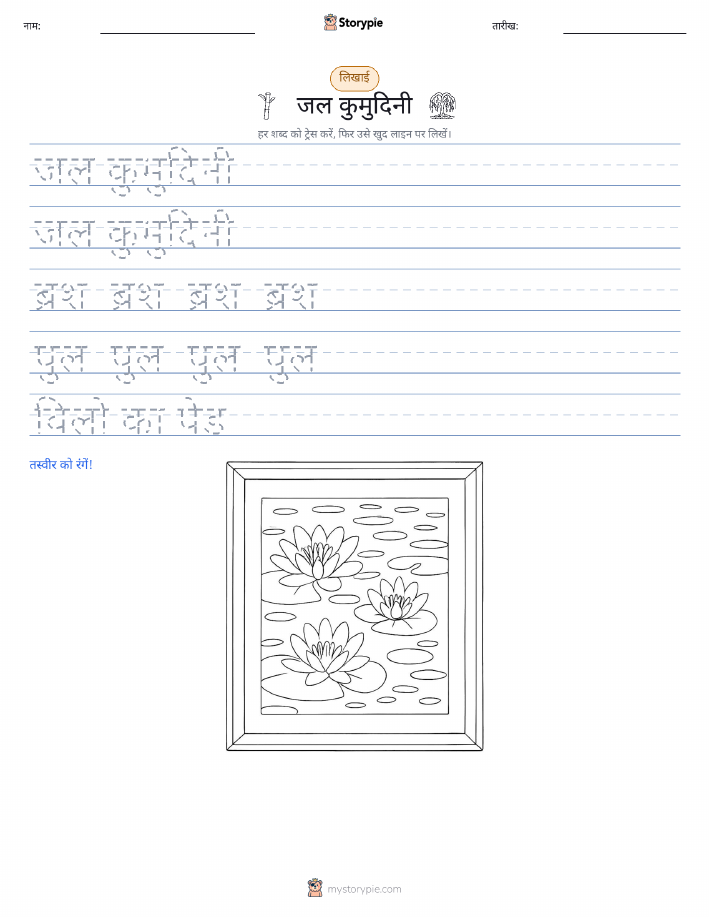 नाम:
Storypie
तारीख:
लिखाई
जल कुमुदिनी
हर शब्द को ट्रेस करें, फिर उसे खुद लाइन पर लिखें।
जल कुमुदिनी
जल कुमुदिनी
ब्रश ब्रश ब्रश ब्रश
पुल पुल पुल पुल
विलो का पेड
तस्वीर को रंगें!
mystorypie.com